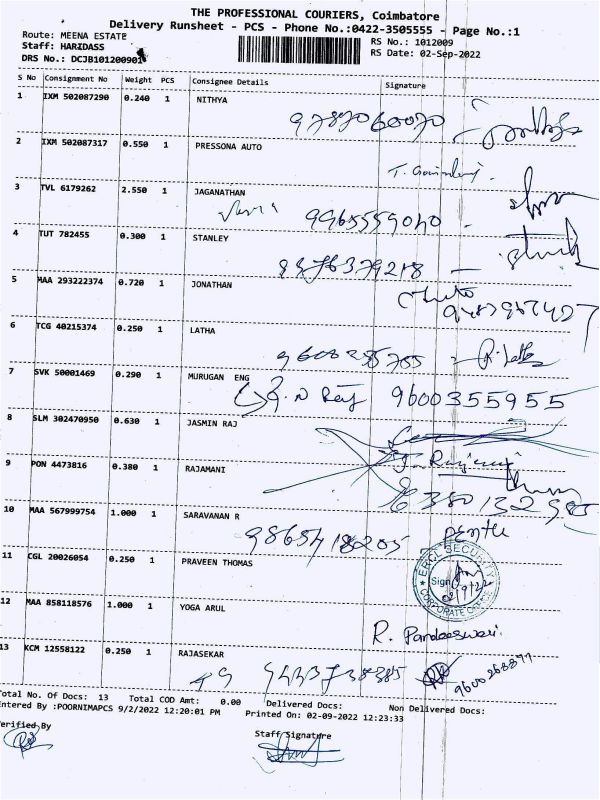 THE PROFESSIONAL COURIERS, Coimbatore
Delivery Runsheet - PCS - Phone No.:0422-3505555 - Page No.:1
Route: MEENA ESTATE
RS No.: 1012009
Staff: HARIDASS
RS Date: 02-Sep-2022
DRS No.: DCJB101200901
S No Consignment No Weight PCS Consignee Details Signature
1 IXM 502087290 0.240 1 NITHYA
9787060070
2 IXM 502087317 0.550 1 PRESSONA AUTO
3 TVL 6179262 2.550 1 JAGANATHAN
9965559040
4 TUT 782455 0.300 1 STANLEY
5 MAA 293222374 0.720 1 JONATHAN
6 TCG 40215374 0.250 1 LATHA
R. Latha
7 SVK 50001469 0.290 1 MURUGAN ENG
9600355955
8 SLM 302470950 0.630 1 JASMIN RAJ
9 PON 4473816 0.380 1 RAJAMANI
10 MAA 567999754 1.000 1 SARAVANAN R
11 CGL 20026054 0.250 1 PRAVEEN THOMAS
ERCL SECURITY
Sign
CORPORATE OFFICE
12 MAA 858118576 1.000 1 YOGA ARUL
R. Pandeeswari
13 KCM 12558122 0.250 1 RAJASEKAR
Total No. Of Docs: 13 Total COD Amt: 0.00 Delivered Docs: Non Delivered Docs:
Entered By :POORNIMAPCS 9/2/2022 12:20:01 PM Printed On: 02-09-2022 12:23:33
Verified By
Staff Signature